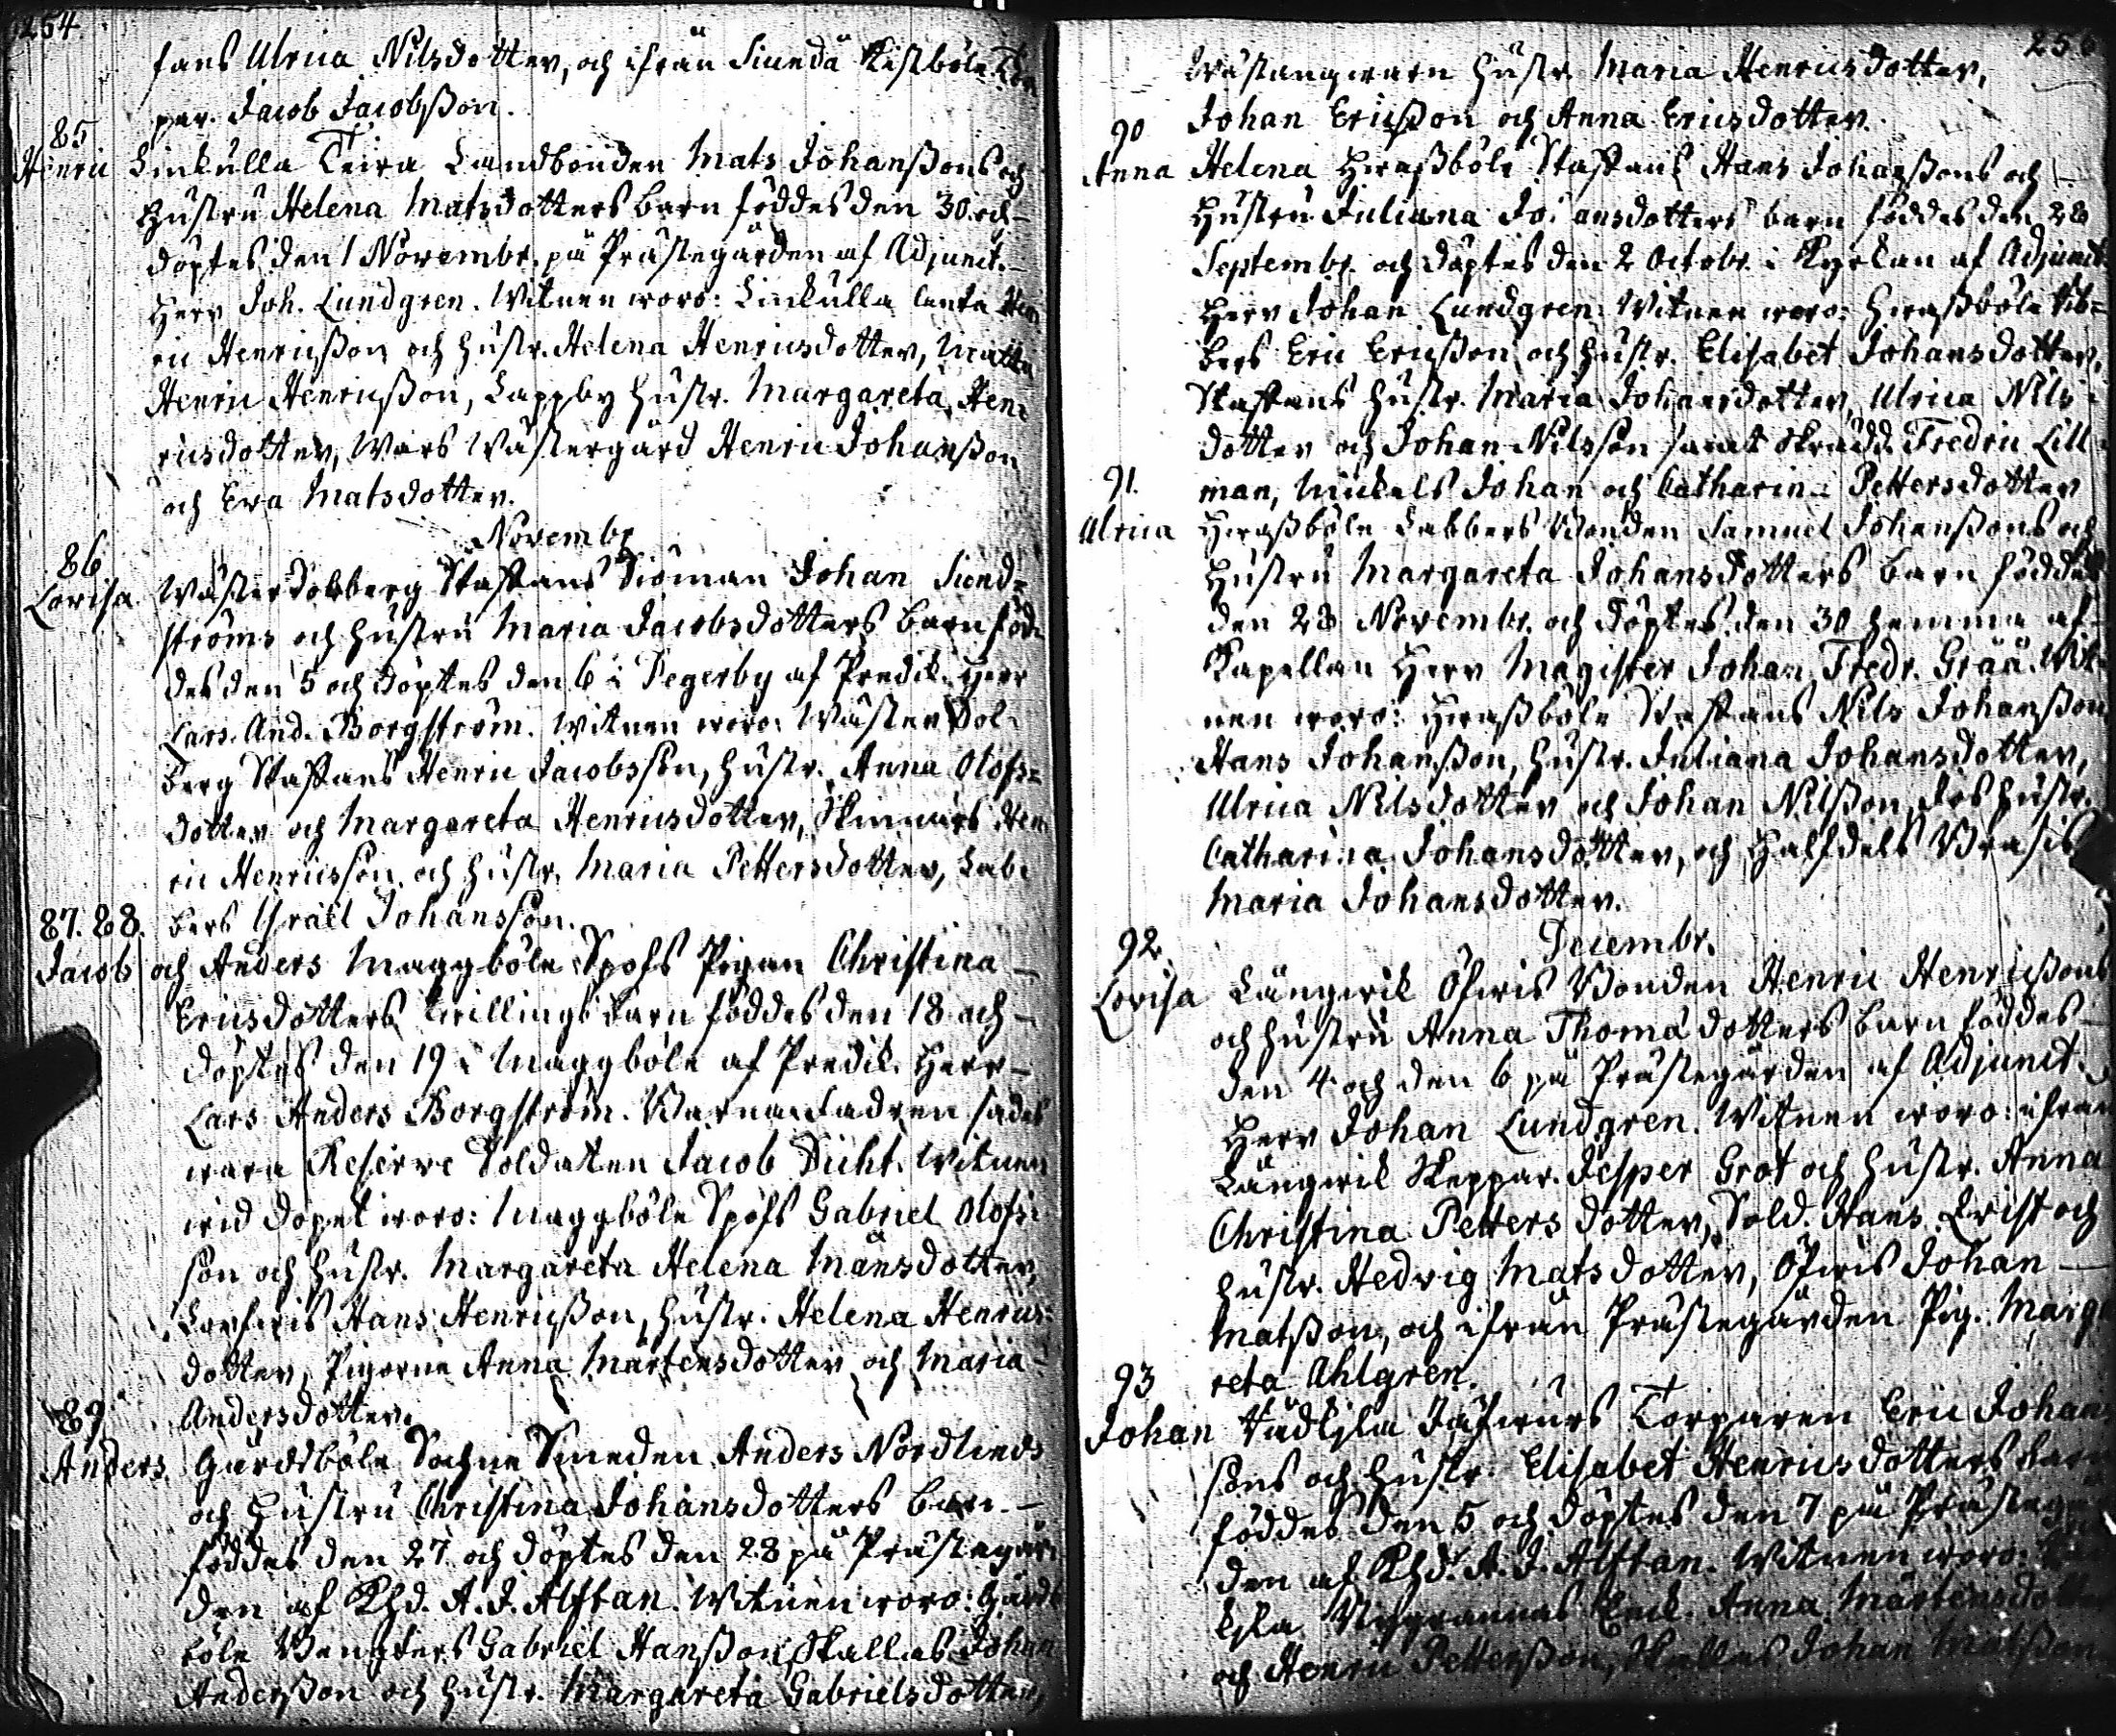 254
fans Ulrica Nilsdotter, och ifrån Siundå Kistböle
par. Jacob Jacobsson.
85
Henric Linkulla Teira Landbonden Mats Johanssons och
Hustru Helena Matsdotters Barn föddes den 30. och
döptes den 1 Novembr. på Prästegården af Adjunct.
Herr Joh. Lundgren. Witnen woro: Linkulla Hen
ric Henricsson och Hustr. Helena Henricsdotter,
Henric Henricsson, Lappby Hustr. Margareta Hen
ricsdotter, Wars Wästergård Henric Johansson
och Eva Matsdotter.
Novembr.
86
Lovisa Wäster Dolberg Staffans Sioman Johan Sund=
ströms och Hustru Maria Jacobsdotters Barn föd
des den 5 och döptes den 6 i Degerby af Predik. Herr
Lars And. Borgström. Witnen woro: Wäster Dol
berg Staffans Henric Jacobsson, Hustr. Anna Olofs=
dotter och Margareta Henricsdotter, Skinnars Hen
ric Henricsson och Hustr. Maria Pettersdotter, Lab
bers Israël Johansson.
87. 88.
Jacob och Anders Maggböle Spofs Pigan Christina
Ericsdotters twillings Barn föddes den 18 och
döptes den 19 i Maggböle af Predik. Herr
Lars Anders Borgström. Barnafadren sades
wara Reserve Soldaten Jacob Dicht. Witnen
wid dopet woro: Maggböle Spofs Gabriel Olofs
son och Hustr. Margareta Helena Månsdotter,
Hans Henricsson, Hustr. Helena Henrics
dotter, Pigorne Anna Mårtensdotter och Maria
Andersdotter.
89
Anders Gårdsböle Sochne Smeden Anders Nordlinds
och Hustru Christina Johansdotters Barn
föddes den 27 och döptes den 28 på Prästegår
den af Khd. A. J. Alftan. Witnen woro: Gårds
böle Bengters Gabriel Hansson, Skallas Johan
Andersson och Hustr. Margareta Gabrielsdotter,
Wästangwarn Hustr. Maria Henricsdotter,
Johan Ericsson och Anna Ericsdotter.
90
Anna Helena Hwassböle Staffans Hans Johanssons och
Hustru Juliana Johansdotters barn föddes den 28
Septembr. och döptes den 2 Octobr. i Kyrkan af Adjunct.
Herr Johan Lundgren. Witnen woro: Hwassböle Lab=
bers Eric Ericsson och Hustr. Elisabet Johansdotter,
Staffans Hustr. Maria Johansdotter, Ulrica Nils
dotter och Johan Nilsson samt Skrädd. Fredric Lill
man, Mickels Johan och Catharina Pettersdotter
91.
Ulrica Hwassböle Labbers Bonden Samuel Johanssons och
Hustru Margareta Johansdotters Barn föddes
den 28 Novembr. och döptes den 30 hemma af
Kapellan Herr Magister Johan Fredr. Gråå. Wit
nen woro: Hwassböle Staffans Nils Johansson
Hans Johansson, Hustr. Juliana Johansdotter,
Ulrica Nilsdotter och Johan Nilsson, des Hustr.
Catharina Johansdotter, och Halfdels
Maria Johansdotter.
Decembr.
92.
Lovisa Långwik Öfwis Bonden Henric Henricssons
och Hustru Anna Thomædotters Barn föddes
den 4 och den 6 på Prästegården af Adjunct.
Herr Johan Lundgren. Witnen woro: ifrån
Långwik Skeppar. Jesper Grot och Hustr. Anna
Christina Pettersdotter, Sold. Hans Qvist och
Hustr. Hedvig Matsdotter, Öfwis Johan
Matsson, och ifrån Prästegården Pig. Marga
reta Ahlgren.
93
Johan Torparen Eric Johans
sons och Hustr. Elisabet Henricsdotters Barn
föddes den 5 och döptes den 7 på Prästegår
den af Khd. A. J. Alftan. Witnen woro:
Enk. Anna Mårtensdotter
och Henric Pettersson, Skallas Johan Matsson